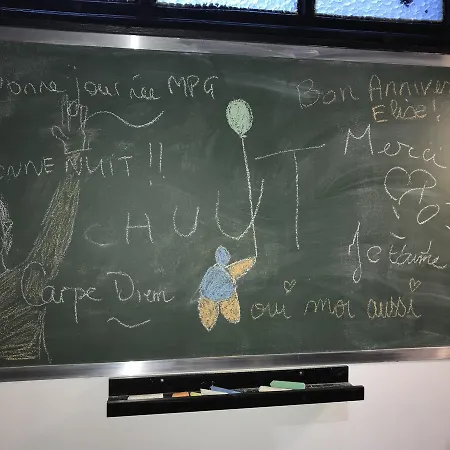 onne journée MPG
Bon Anniver
Elise!
Merci
ONNE NUIT !!
CHUUT
Je t'aime
Carpe Diem
oui moi aussi